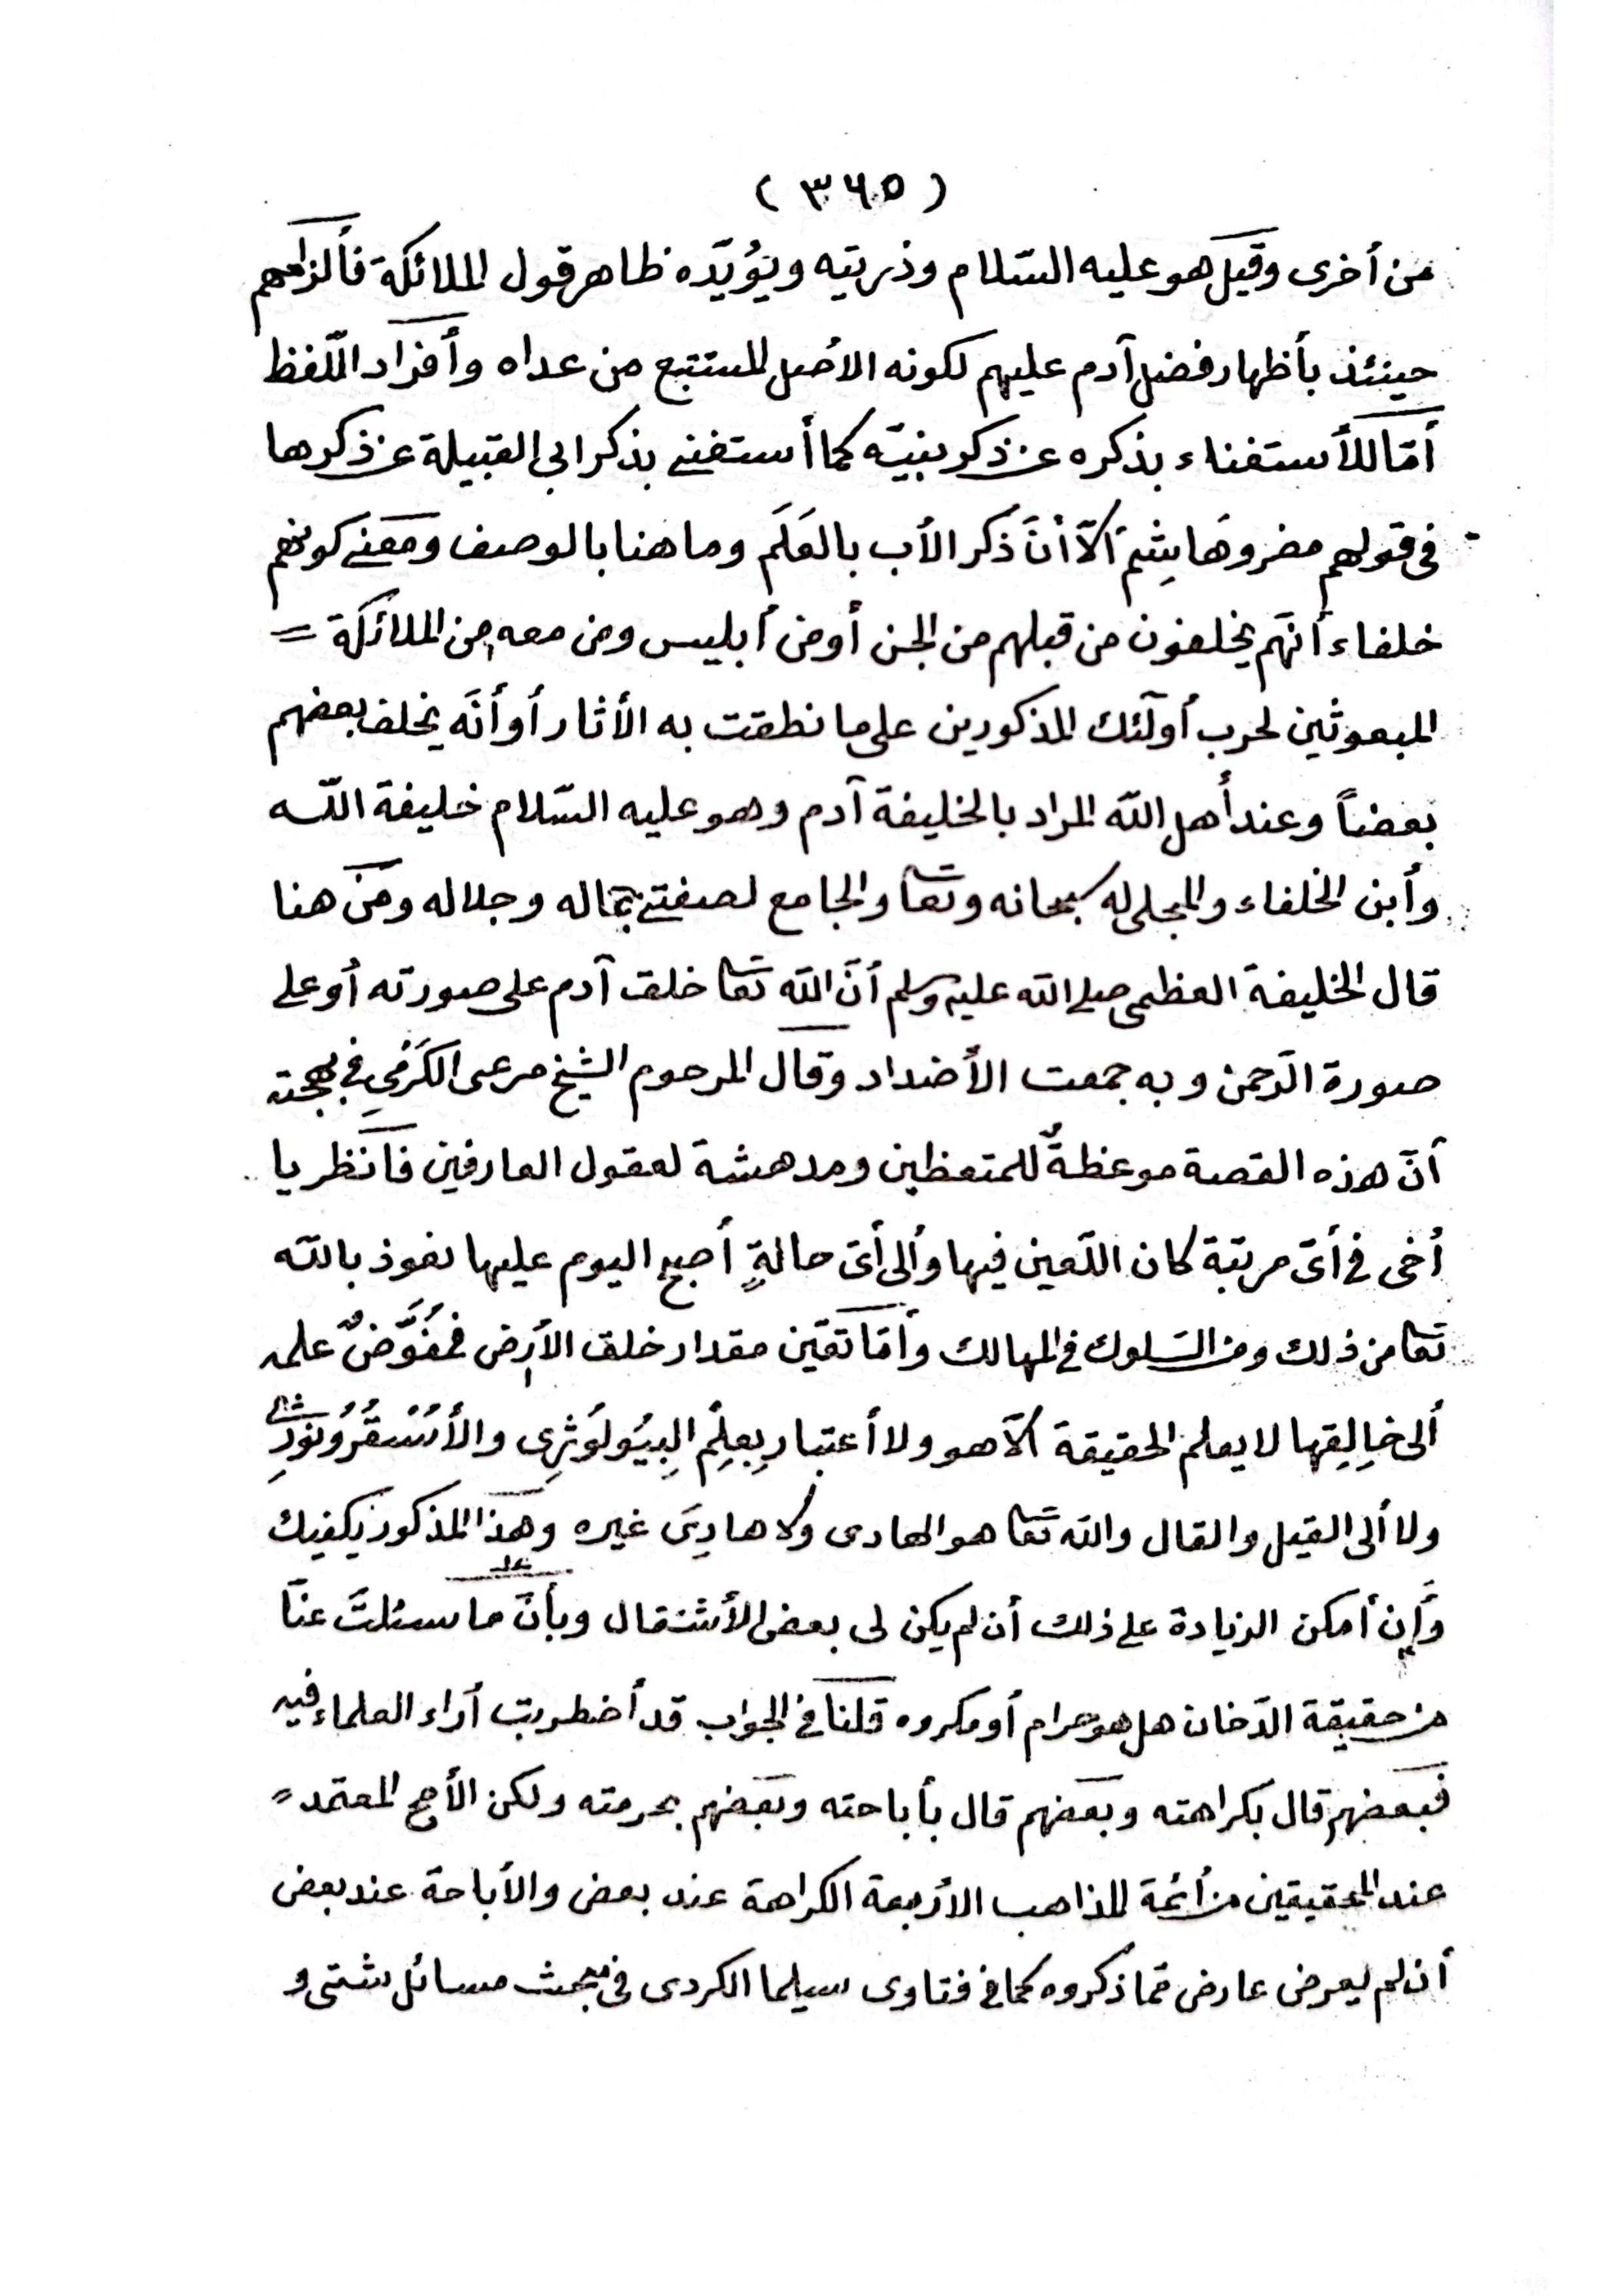 ( ٣٦٥ )
من أخرى وقيل هو عليه السّلام وذريته ويؤيّده ظاهر قول الملائكة فألزامهم
حينئذ بأظهار فضل آدم عليهم لكونه الأصل المستتبع من عداه وأفراد اللّفظ
أمّا للأستغناء بذكره عن ذكر بنيّه كما أستغنى بذكر ابى القبيلة عن ذكرها
فى قولهم مضر وهَاشِم ألّا أنَّ ذكر الأب بالعَلَم وما هنا بالوصف ومعنى كونهم
خلفاء أنّهم يخلفون من قبلهم من الجن أو من أبليس ومن معه من الملائكة =
المبعوثين لحرب أولَئك المذكورين على ما نطقت به الأثار أو أنَّه يخلف بعضهم
بعضاً وعند أهل اللّه المراد بالخليفة آدم وهو عليه السّلام خليفة اللّه
وأبن الخلفاء والمجلى له سبحانه وتعا والجامع لصفتى جماله وجلاله ومن هنا
قال الخليفة العظمى صلى اللّه عليه وسلم أنَّ اللّه تعا خلق آدم على صورته أو على
صورة الرّحمن وبه جمعت الأضداد وقال المرحوم الشيخ مرعى الكَرَمي في بهجته
أنّ هذه القصة موعظةٌ للمتعظين ومدهشة لعقول العارفين فأنظر يا
أخى في أىّ مرتبة كان اللّعين فيها وألى أىّ حالةٍ أصبح اليوم عليها نعوذ باللّه
تعا من ذلك ومن السّلوك فى المهالك وأمّا تعيّن مقدار خلق الأرض فمُفَوَّضٌ علمه
ألى خالِقِها لا يعلم الحقيقة ألّا هو ولا أعتبار بِعِلِمِ البِيُولُوثِرِى والأسْتقُرُونوزِ
ولا ألى القيل والقال واللّه تعا هو الهادى ولا هادِىَ غيره وهذا المذكور يكفيك
وَأِن أمكن الزيادة على ذلك أن لم يكن لى بعض الأشتغال وبأنّ ما سئلتَ عنّا
من حقيقة الدّخان هل هو حرام أو مكروه قلنا في الجواب قد أضطربت أراء العلماء فيه
فبعضهم قال بكراهته وبعضهم قال بأباحته وبعضهم بحرمته ولكن الأصح المعتمد =
عند المحقيقين من أئمة المذاهب الأربعة الكراهة عند بعض والأباحة عند بعض
أن لم يعرض عارض ممّا ذكروه كما في فتاوى سيلما الكردى في مبحث مسائل شتى و